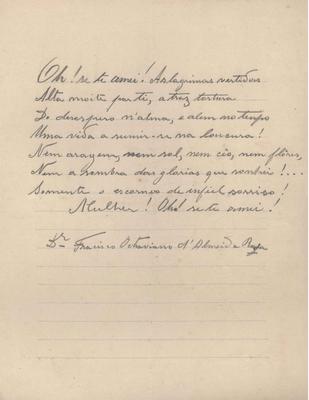 Oh! se te amei! As lagrimas vertidas
Alta noite por ti, atroz tortura
Do desespero n'alma, e além no tempo
Uma vida a sumir-se na loucura!
Nem aragem, nem sol, nem céo, nem flôres,
Nem a sombra das glorias que sonhei!...
Somente o escarneo de infiel sorriso!
Mulher! Oh! se te amei!
Dr Francisco Octaviano d'Almeida Rosa